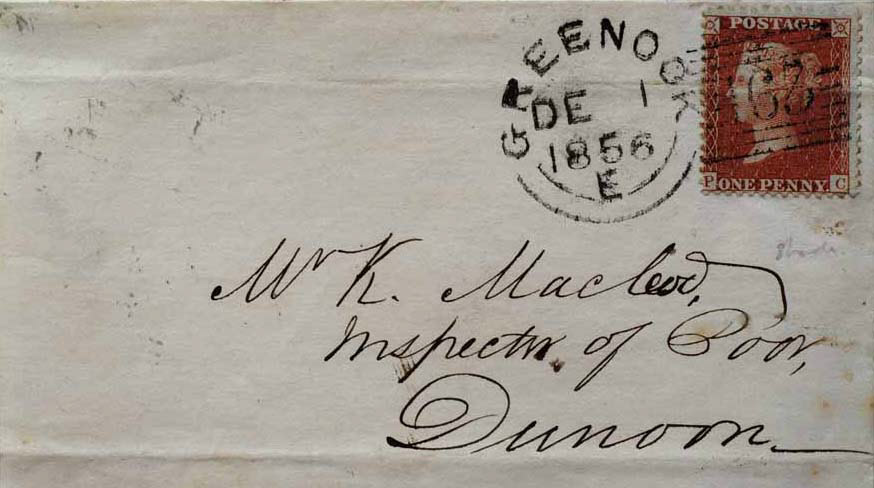 GREENOCK
DE 1
1856
E
POSTAGE
163
P ONE PENNY C
Mr K. Macleod,
Inspector of Poor,
Dunoon